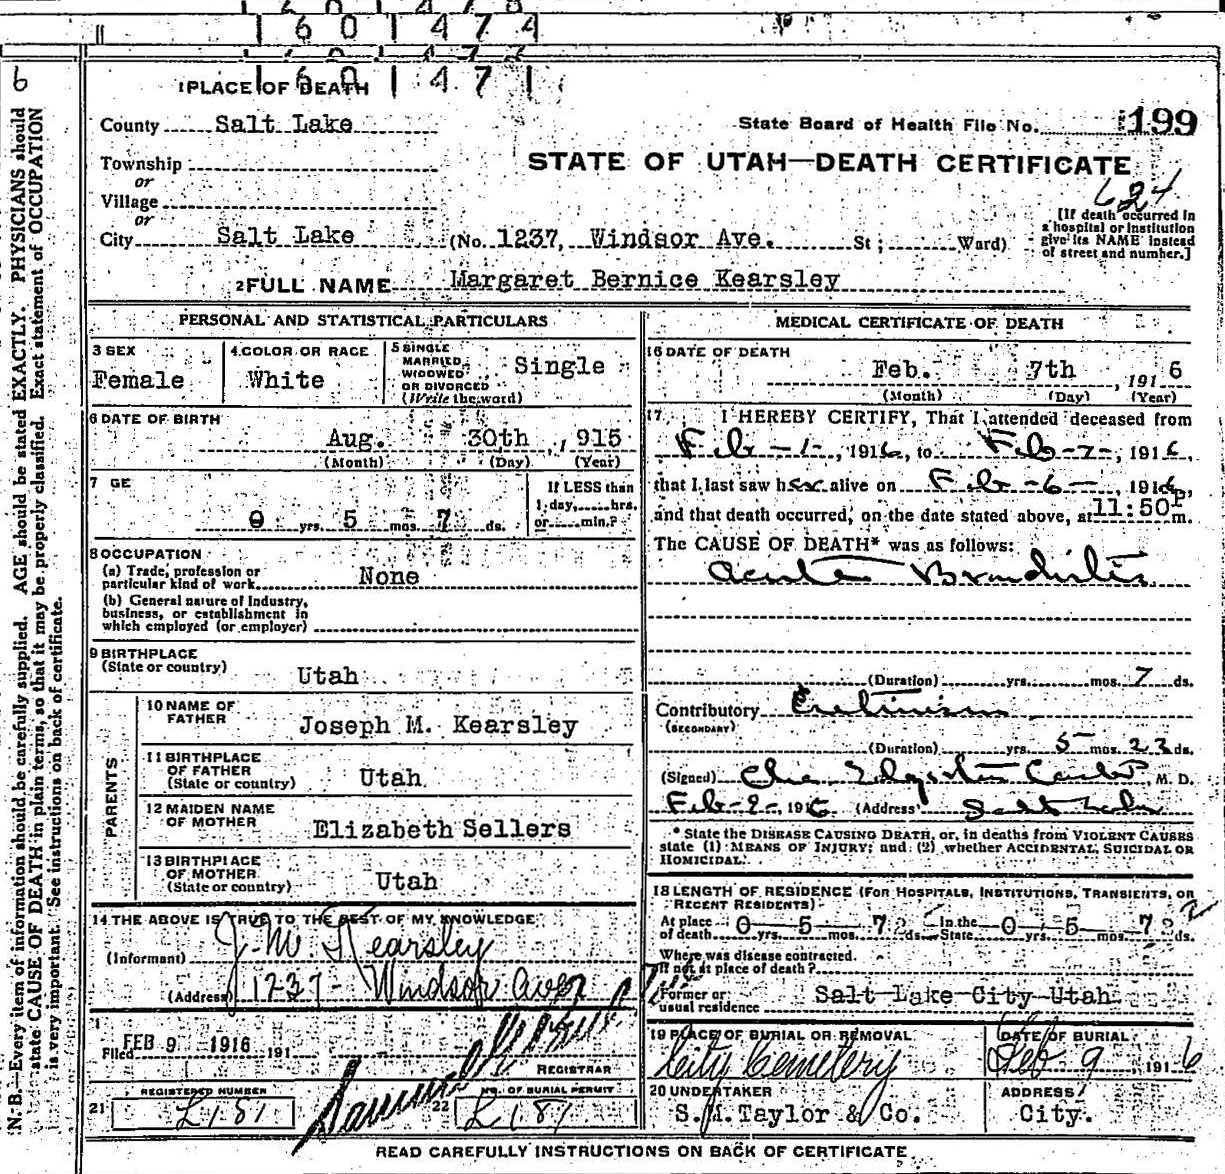 1601474
1601471
6
1 PLACE OF DEATH
County Salt Lake
State Board of Health File No. 199
Township
or
Village
or
City Salt Lake (No. 1237, Windsor Ave. St; Ward)
STATE OF UTAH—DEATH CERTIFICATE
624
[If death occurred in
a hospital or institution
give its NAME instead
of street and number.]
2 FULL NAME Margaret Bernice Kearsley
PERSONAL AND STATISTICAL PARTICULARS
3 SEX
Female
4 COLOR OR RACE
White
5 SINGLE
MARRIED
WIDOWED
OR DIVORCED
(Write the word)
Single
6 DATE OF BIRTH
Aug. 30th, 915
(Month) (Day) (Year)
7 GE
0 yrs. 5 mos. 7 ds.
If LESS than
1 day, hrs.
or min.?
8 OCCUPATION
(a) Trade, profession or
particular kind of work None
(b) General nature of Industry,
business, or establishment in
which employed (or employer)
9 BIRTHPLACE
(State or country) Utah
PARENTS
10 NAME OF
FATHER Joseph M. Kearsley
11 BIRTHPLACE
OF FATHER
(State or country) Utah
12 MAIDEN NAME
OF MOTHER Elizabeth Sellers
13 BIRTHPLACE
OF MOTHER
(State or country) Utah
14 THE ABOVE IS TRUE TO THE BEST OF MY KNOWLEDGE
(Informant) J. M. Kearsley
(Address) 1237 - Windsor Aven
Filed FEB 9 1916 191
REGISTRAR
21 REGISTERED NUMBER
L181
22 NO. OF BURIAL PERMIT
L181
MEDICAL CERTIFICATE OF DEATH
16 DATE OF DEATH
Feb. 7th, 191 6
(Month) (Day) (Year)
17 I HEREBY CERTIFY, That I attended deceased from
Feb - 1 -, 1916, to Feb - 7 -, 1916,
that I last saw her alive on Feb - 6 -, 1916,
and that death occurred, on the date stated above, at 11:50 P m.
The CAUSE OF DEATH* was as follows:
Acute Bronchitis
(Duration) yrs. mos. 7 ds.
Contributory Cretinism
(SECONDARY)
(Duration) yrs. 5 mos. 23 ds.
(Signed) M. D.
1916 (Address) Salt Lake
* State the DISEASE CAUSING DEATH, or, in deaths from VIOLENT CAUSES
state (1) MEANS OF INJURY; and (2) whether ACCIDENTAL, SUICIDAL OR
HOMICIDAL.
18 LENGTH OF RESIDENCE (FOR HOSPITALS, INSTITUTIONS, TRANSIENTS, OR
RECENT RESIDENTS)
At place
of death 0 yrs. 5 mos. 7 ? ds. In the
State 0 yrs. 5 mos. 7 ? ds.
Where was disease contracted.
If not at place of death?
Former or
usual residence Salt Lake City Utah
19 PLACE OF BURIAL OR REMOVAL
City Cemetery
DATE OF BURIAL
Feb 9 191 6
20 UNDERTAKER
S.M. Taylor & Co.
ADDRESS
City.
READ CAREFULLY INSTRUCTIONS ON BACK OF CERTIFICATE
N. B.—Every item of information should be carefully supplied. AGE should be stated EXACTLY. PHYSICIANS should
state CAUSE OF DEATH in plain terms, so that it may be properly classified. Exact statement of OCCUPATION
is very important. See instructions on back of certificate.